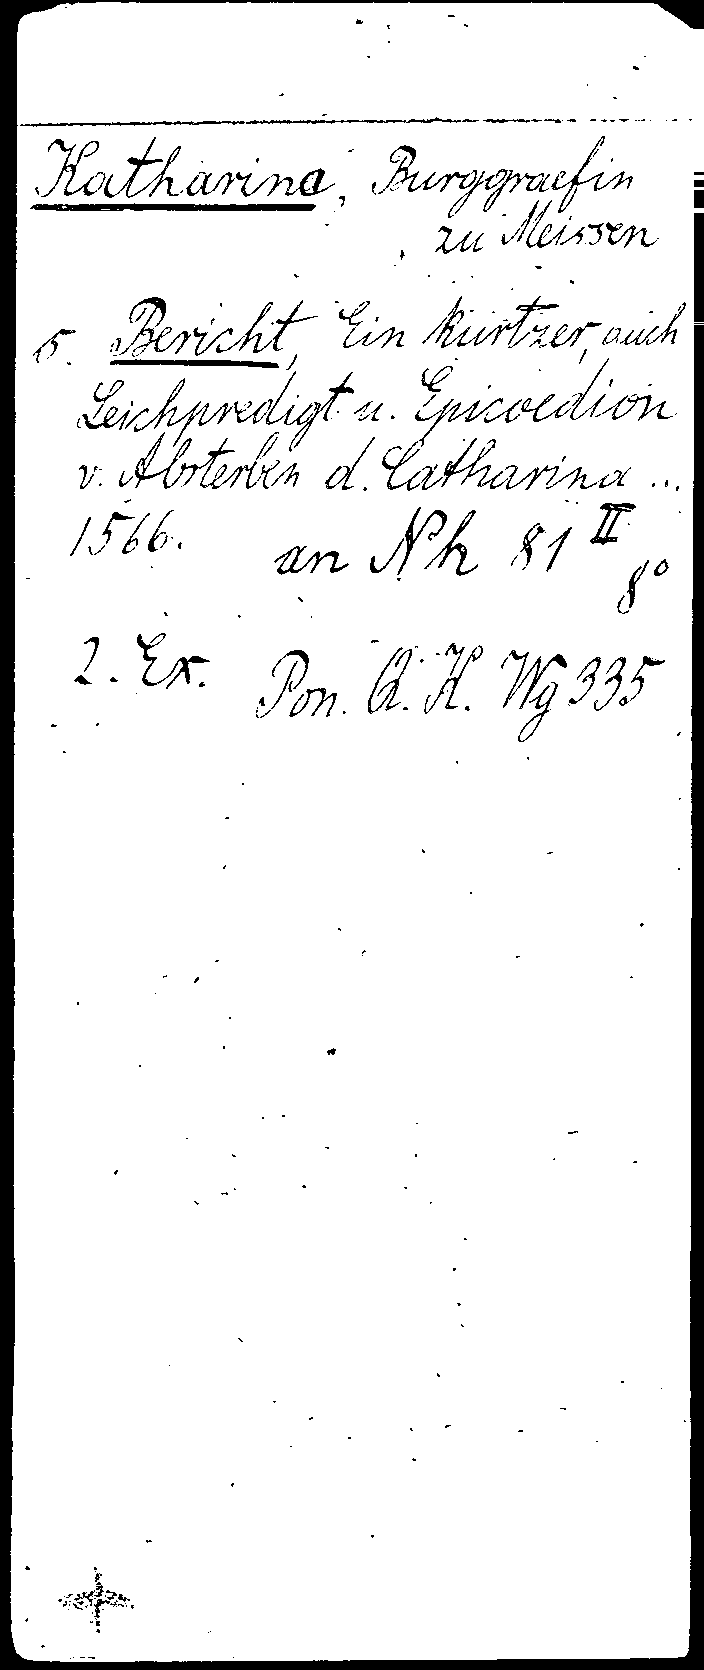 Katharina, Burggraefin
zu Meissen
s. Bericht, Ein kurtzer, auch
Leichpredigt u. Epicoedion
v. Absterben d. Catharina ...
1566. an Nh 81 II
8°
2. Ex. Pon. Q. K. Wg 335